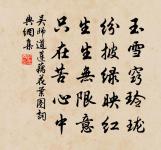 玉雪窍玲珑
纷披绿映红
生生无限意
只在苦心中
吴师道莲藕花叶图词
兴纲集